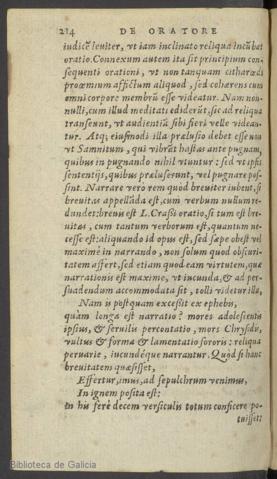 214 DE ORATORE
iudicē leuiter, vt iam inclinato reliqua incūbat
oratio. Connexum autem ita sit principium con-
sequenti orationi, vt non tanquam citharœdi
proœmium affictum aliquod, sed cohærens cum
omni corpore membrū esse videatur. Nam non-
nulli, cum illud meditati ediderūt, sic ad reliqua
transeunt, vt audientiā sibi fieri nolle videan-
tur. Atq; eiusmodi illa prælusio debet esse non
vt Samnitum, qui vibrāt hastas ante pugnam,
quibus in pugnando nihil vtuntur: sed vt ipsis
sententijs, quibus præluserunt, vel pugnare pos-
sint. Narrare verò rem quod breuiter iubent, si
breuitas appellāda est, cum verbum nullum re-
dundet: breuis est L. Crassi oratio, si tum est bre-
uitas, cum tantum verborum est, quantum ne-
cesse est: aliquando id opus est, sed sæpe obest vel
maximè in narrando, non solum quod obscuri-
tatem affert, sed etiam quod eam virtutem, quæ
narrationis est maxima, vt iucunda, & ad per-
suadendum accommodata sit, tollit videtur illa,
Nam is postquam excessit ex ephebis,
quàm longa est narratio? mores adolescentis
ipsius, & seruilis percontatio, mors Chrysidis,
vultus & forma & lamentatio sororis: reliqua
peruariè, iucundéque narrantur. Quòd si hanc
breuitatem quæsisset,
Effertur, imus, ad sepulchrum venimus,
In ignem posita est:
in his ferè decem versiculis totum conficere po-
tuisset:
Biblioteca de Galicia